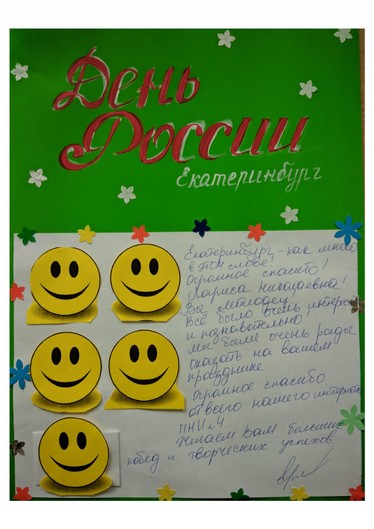 День
России
Екатеринбург
Екатеринбург - как много
в этом слове!
Огромное спасибо!
Лариса Николаевна!
Вы молодец
Всё было очень интерес
и познавательно
мы были очень рады
оказать на вашем
празднике
Огромное спасибо
от всего нашего интерната
ПНИ
Желаем Вам больших
побед и творческих успехов